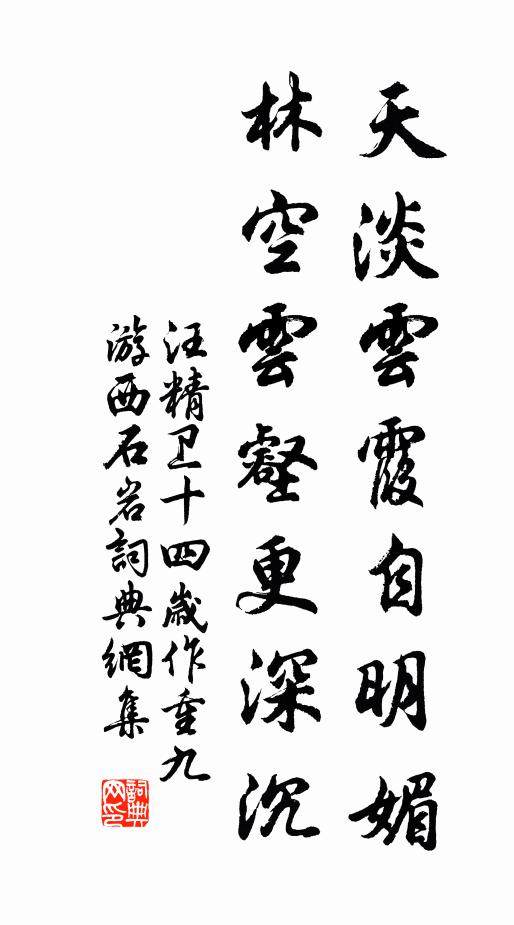 天淡雲霞自明媚
林空雲壑更深沉
汪精卫十四歲作重九
游西石岩詞典網集
詞典网印